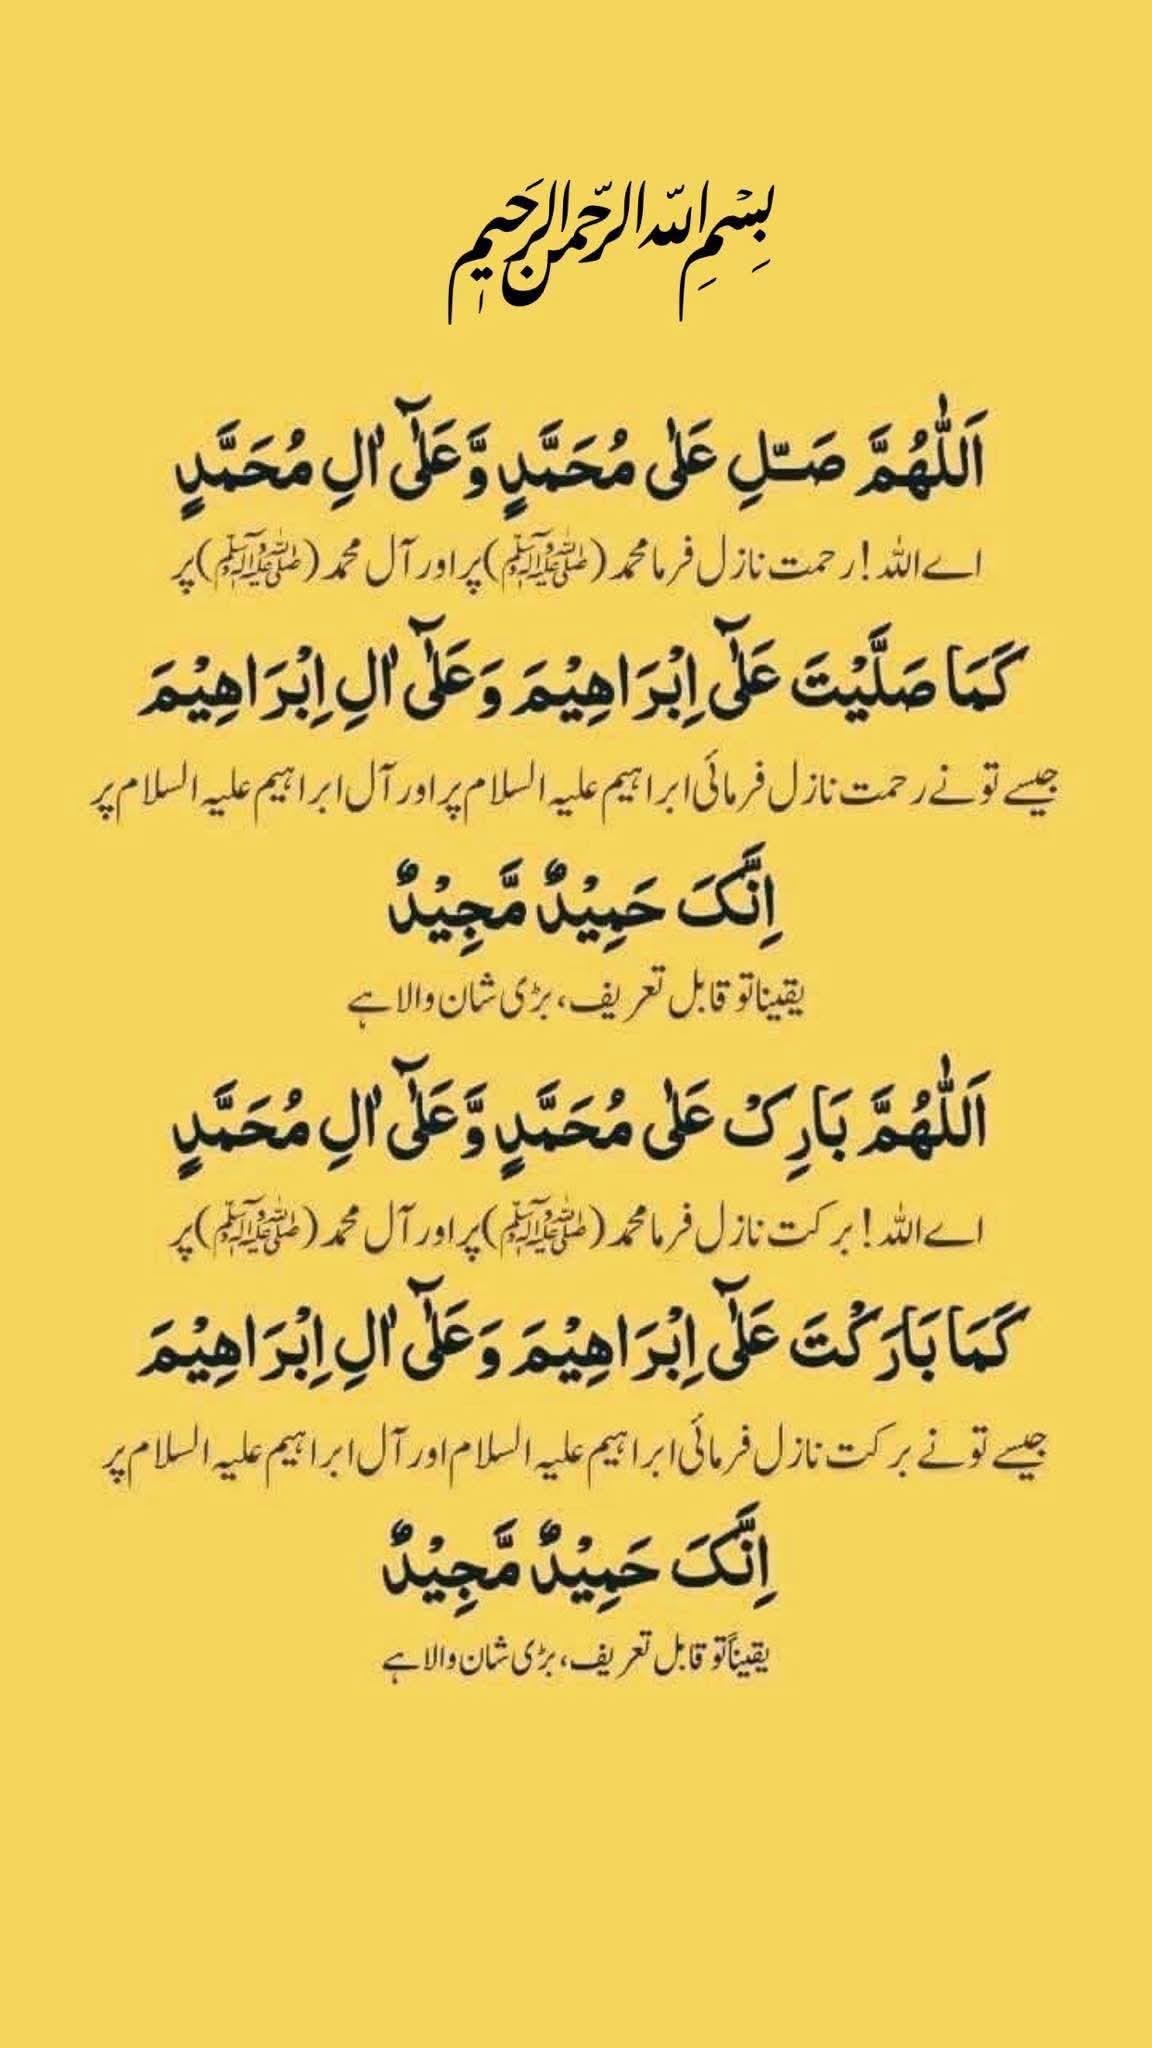 بِسْمِ اللّٰہِ الرَّحْمٰنِ الرَّحِیْمِ
اَللّٰهُمَّ صَلِّ عَلٰی مُحَمَّدٍ وَّعَلٰٓی اٰلِ مُحَمَّدٍ
اے اللہ! رحمت نازل فرما محمد (ﷺ) پر اور آل محمد (ﷺ) پر
کَمَا صَلَّیْتَ عَلٰٓی اِبْرَاهِیْمَ وَعَلٰٓی اٰلِ اِبْرَاهِیْمَ
جیسے تو نے رحمت نازل فرمائی ابراہیم علیہ السلام پر اور آل ابراہیم علیہ السلام پر
اِنَّکَ حَمِیْدٌ مَّجِیْدٌ
یقینا تو قابل تعریف، بڑی شان والا ہے
اَللّٰهُمَّ بَارِکْ عَلٰی مُحَمَّدٍ وَّعَلٰٓی اٰلِ مُحَمَّدٍ
اے اللہ! برکت نازل فرما محمد (ﷺ) پر اور آل محمد (ﷺ) پر
کَمَا بَارَکْتَ عَلٰٓی اِبْرَاهِیْمَ وَعَلٰٓی اٰلِ اِبْرَاهِیْمَ
جیسے تو نے برکت نازل فرمائی ابراہیم علیہ السلام اور آل ابراہیم علیہ السلام پر
اِنَّکَ حَمِیْدٌ مَّجِیْدٌ
یقیناً تو قابل تعریف، بڑی شان والا ہے